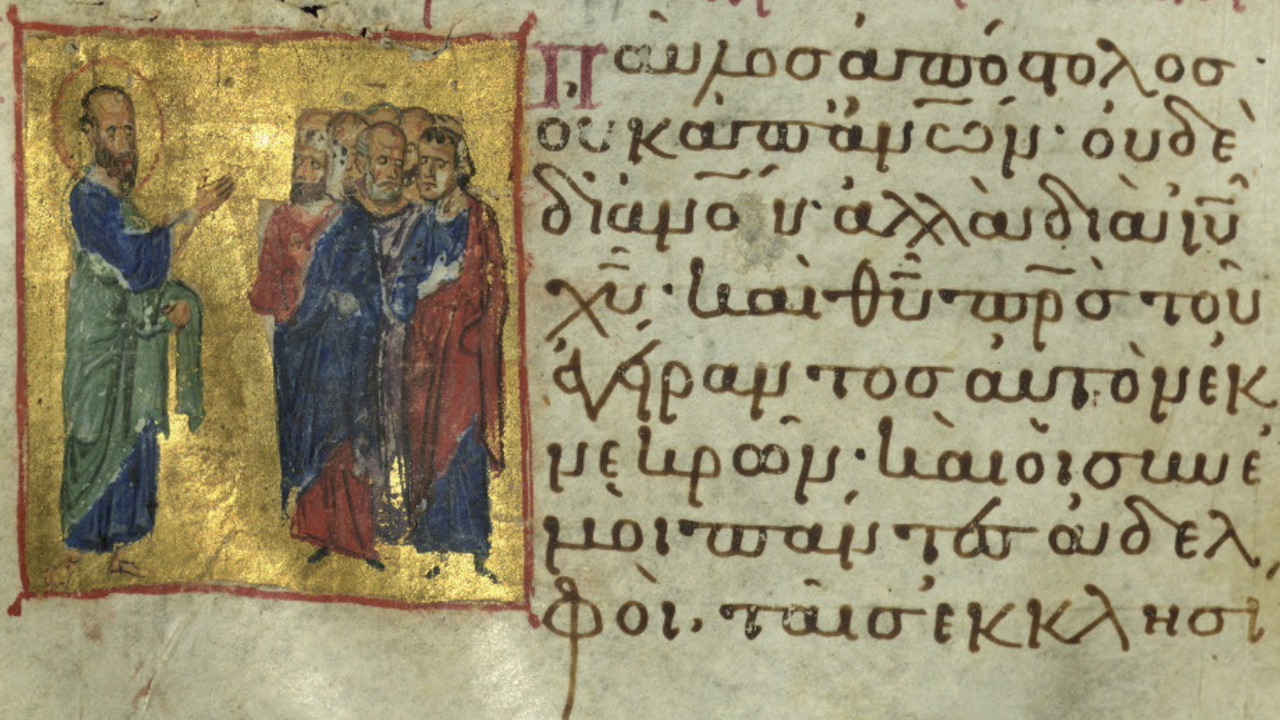 Παῦλος ἀπόστολος·
οὐκ ἀπ' ἀν̅ω̅ν· οὐδὲ
δι' ἀν̅ο̅υ· ἀλλὰ διὰ ἰυ̅
χυ̅· καὶ θυ̅ πρ̅ς τοῦ
ἐγείραντος αὐτὸν ἐκ
νεκρῶν· καὶ οἱ σὺν ἐ
μοὶ πάντες ἀδελ
φοὶ, ταῖς ἐκκλησί